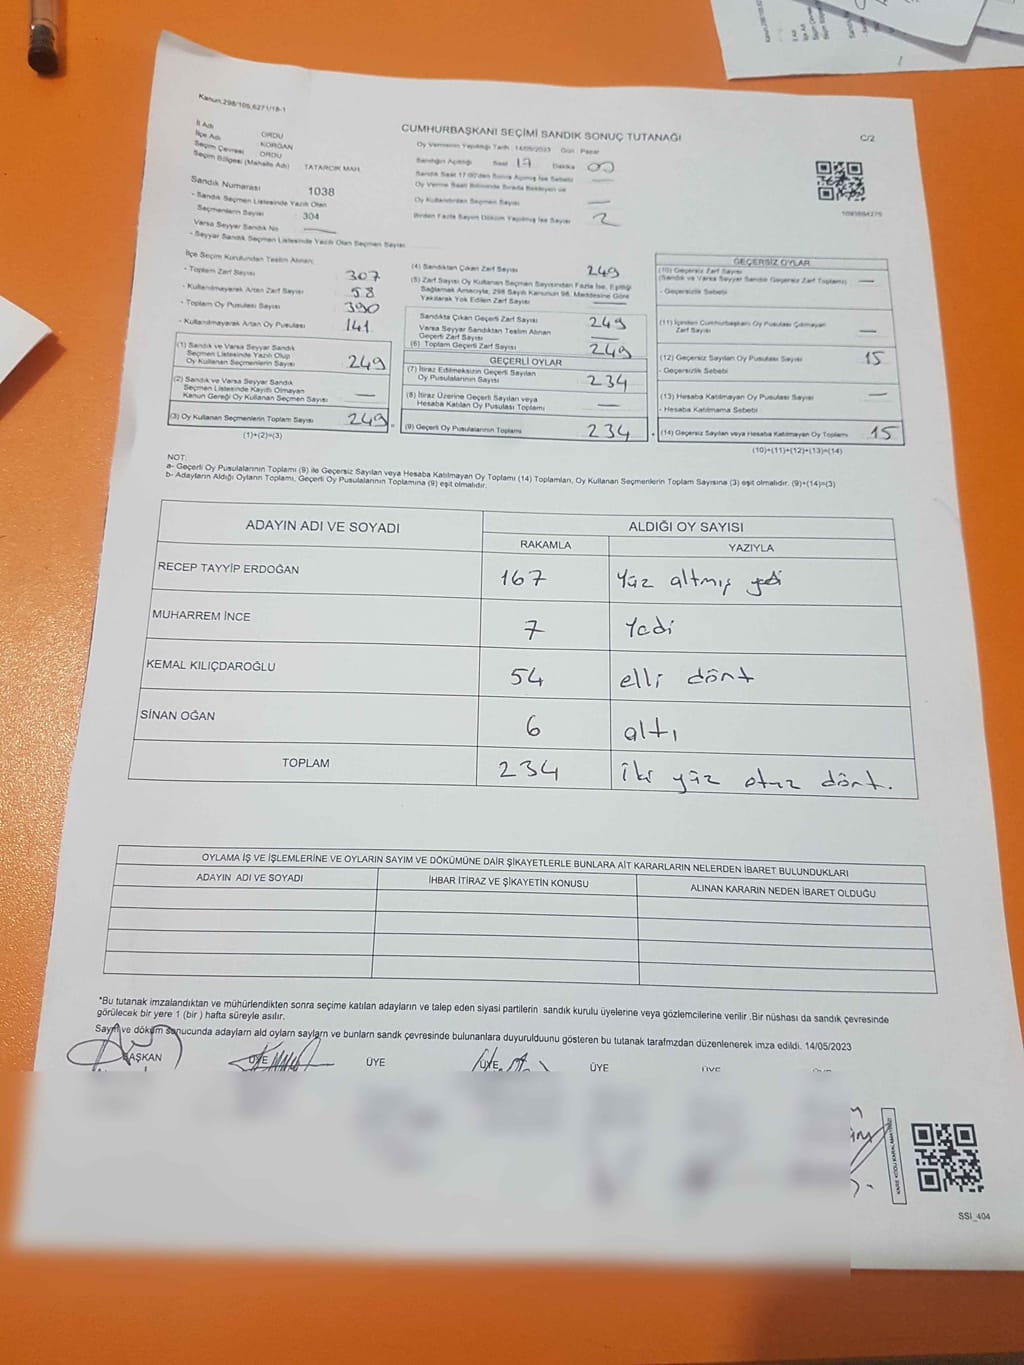 Kanun.298/105,6271/18-1
CUMHURBAŞKANI SEÇİMİ SANDIK SONUÇ TUTANAĞI
C/2
İl Adı
İlçe Adı ORDU
Seçim Çevresi KORGAN
Seçim Bölgesi (Mahalle Adı) ORDU
TATARCIK MAH.
Oy Vermenin Yapıldığı Tarih : 14/05/2023 Gün : Pazar
Sandığın Açıldığı Saat 17 Dakika 00
Sandık Saat 17:00'den Sonra Açılmış İse Sebebi —
Oy Verme Saati Bitiminde Sırada Bekleyen ve
Oy Kullandırılan Seçmen Sayısı —
Birden Fazla Sayım Döküm Yapılmış İse Sayısı 2
Sandık Numarası 1038
- Sandık Seçmen Listesinde Yazılı Olan
Seçmenlerin Sayısı 304
Varsa Seyyar Sandık No —
- Seyyar Sandık Seçmen Listesinde Yazılı Olan Seçmen Sayısı
İlçe Seçim Kurulundan Teslim Alınan;
- Toplam Zarf Sayısı 307
- Kullanılmayarak Artan Zarf Sayısı 58
- Toplam Oy Pusulası Sayısı 390
- Kullanılmayarak Artan Oy Pusulası 141
(1) Sandık ve Varsa Seyyar Sandık
Seçmen Listesinde Yazılı Olup
Oy Kullanan Seçmenlerin Sayısı 249
(2) Sandık ve Varsa Seyyar Sandık
Seçmen Listesinde Kayıtlı Olmayan
Kanun Gereği Oy Kullanan Seçmen Sayısı —
(3) Oy Kullanan Seçmenlerin Toplam Sayısı 249
(1)+(2)=(3)
(4) Sandıktan Çıkan Zarf Sayısı 249
(5) Zarf Sayısı Oy Kullanan Seçmen Sayısından Fazla İse, Eşitliği
Sağlamak Amacıyla, 298 Sayılı Kanunun 98. Maddesine Göre
Yakılarak Yok Edilen Zarf Sayısı —
Sandıkta Çıkan Geçerli Zarf Sayısı 249
Varsa Seyyar Sandıktan Teslim Alınan
Geçerli Zarf Sayısı —
(6) Toplam Geçerli Zarf Sayısı 249
GEÇERLİ OYLAR
(7) İtiraz Edilmeksizin Geçerli Sayılan
Oy Pusulalarının Sayısı 234
(8) İtiraz Üzerine Geçerli Sayılan veya
Hesaba Katılan Oy Pusulası Toplamı —
(9) Geçerli Oy Pusulalarının Toplamı 234
GEÇERSİZ OYLAR
(10) Geçersiz Zarf Sayısı
(Sandık ve Varsa Seyyar Sandık Geçersiz Zarf Toplamı) —
- Geçersizlik Sebebi
(11) İçinden Cumhurbaşkanı Oy Pusulası Çıkmayan
Zarf Sayısı —
(12) Geçersiz Sayılan Oy Pusulası Sayısı 15
- Geçersizlik Sebebi
(13) Hesaba Katılmayan Oy Pusulası Sayısı —
- Hesaba Katılmama Sebebi
(14) Geçersiz Sayılan veya Hesaba Katılmayan Oy Toplamı 15
(10)+(11)+(12)+(13)=(14)
NOT:
a- Geçerli Oy Pusulalarının Toplamı (9) ile Geçersiz Sayılan veya Hesaba Katılmayan Oy Toplamı (14) Toplamları, Oy Kullanan Seçmenlerin Toplam Sayısına (3) eşit olmalıdır. (9)+(14)=(3)
b- Adayların Aldığı Oyların Toplamı, Geçerli Oy Pusulalarının Toplamına (9) eşit olmalıdır.
ADAYIN ADI VE SOYADI ALDIĞI OY SAYISI
RAKAMLA YAZIYLA
RECEP TAYYİP ERDOĞAN 167 Yüz altmış yedi
MUHARREM İNCE 7 Yedi
KEMAL KILIÇDAROĞLU 54 elli dört
SİNAN OĞAN 6 altı
TOPLAM 234 iki yüz otuz dört.
OYLAMA İŞ VE İŞLEMLERİNE VE OYLARIN SAYIM VE DÖKÜMÜNE DAİR ŞİKAYETLERLE BUNLARA AİT KARARLARIN NELERDEN İBARET BULUNDUKLARI
ADAYIN ADI VE SOYADI İHBAR İTİRAZ VE ŞİKAYETİN KONUSU ALINAN KARARIN NEDEN İBARET OLDUĞU
*Bu tutanak imzalandıktan ve mühürlendikten sonra seçime katılan adayların ve talep eden siyasi partilerin sandık kurulu üyelerine veya gözlemcilerine verilir .Bir nüshası da sandık çevresinde
görülecek bir yere 1 (bir ) hafta süreyle asılır.
Sayım ve döküm sonucunda adayların ald oylarn sayların ve bunlarn sandk çevresinde bulunanlara duyurulduunu gösteren bu tutanak tarafmzdan düzenlenerek imza edildi. 14/05/2023
BAŞKAN ÜYE ÜYE ÜYE ÜYE ÜYE ÜYE
SSI_404